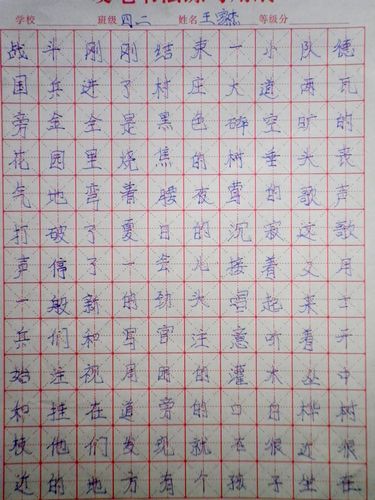 学校 班级 四.二 姓名 王 杰 等级分
战斗刚刚结束一小队德
国兵进了村庄大道两瓦
旁全全是黑色碎空旷的
花园里烧焦的树垂头丧
气地弯着腰夜莺的歌声
打破了夏日的沉寂这歌
声停了一会儿接着又用
一般新的劲头唱起来士
兵们和军官注意听着开
始注视周围的灌木丛中
和挂在道旁的白桦树
枝他们发现就在很近很
近的地方有个孩子坐在